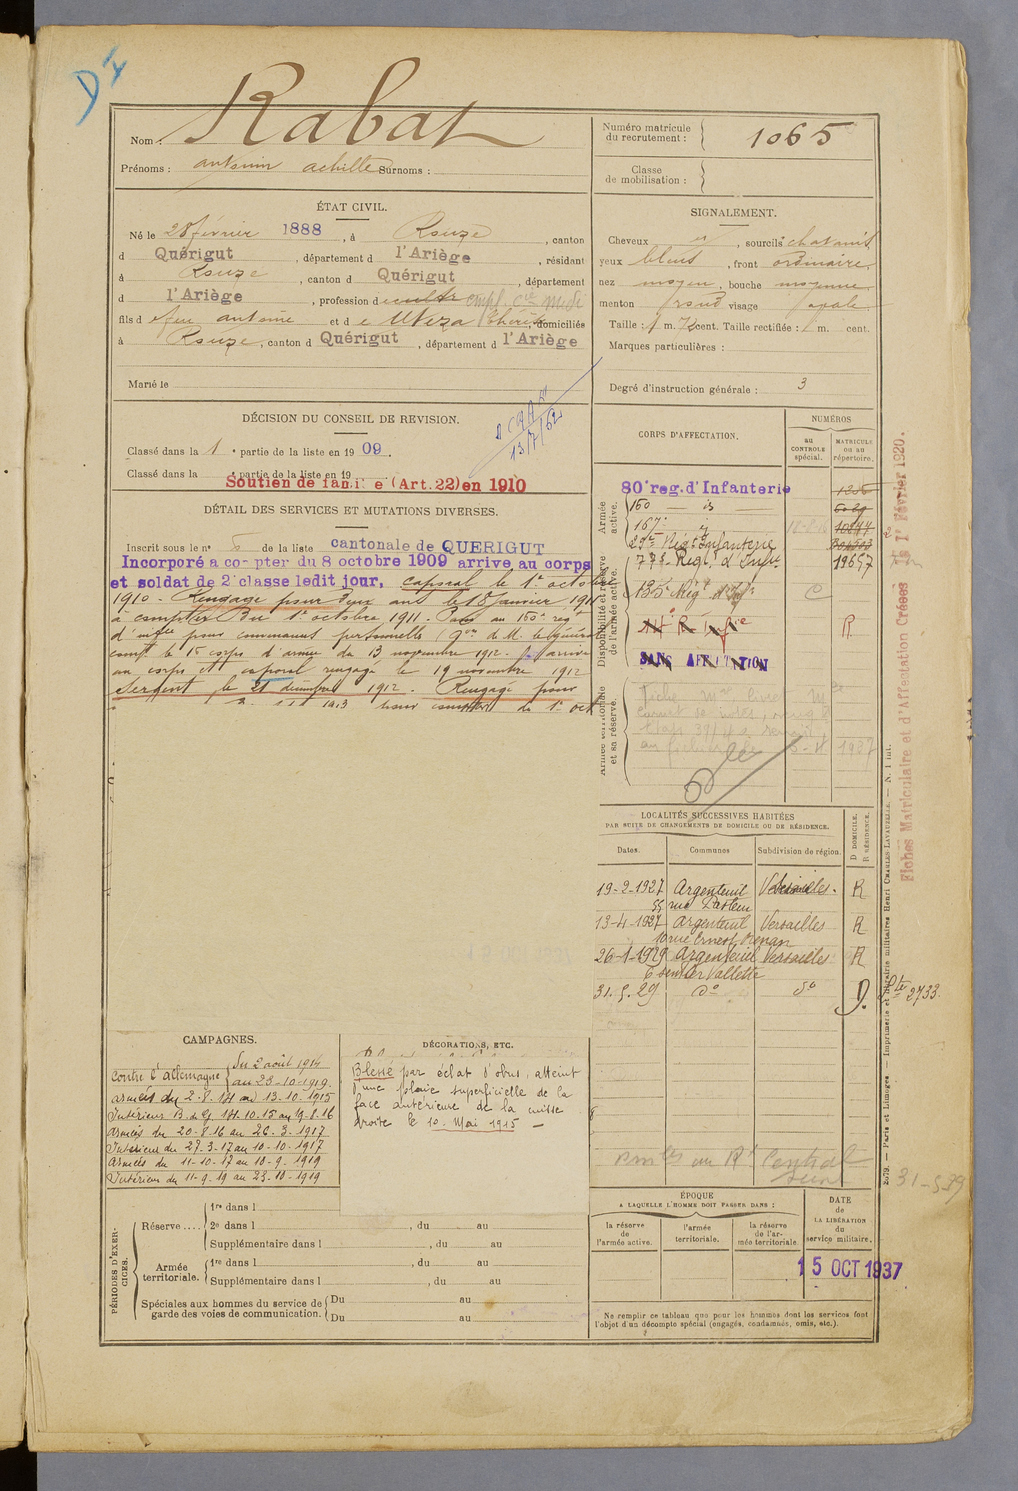 D I
Nom : Rabat
Prénoms : antonin achille Surnoms :
Numéro matricule du recrutement : 1065
Classe de mobilisation :
ÉTAT CIVIL.
Né le 28 février 1888, à Rouze, canton
d Quérigut, département d l'Ariège, résidant
à Rouze, canton d Quérigut, département
d l'Ariège, profession de cultr empl. Cie Midi
fils d e feu antoine et d e Utéza, domiciliés
à Rouze, canton d Quérigut, département d l'Ariège
Marié le
SIGNALEMENT.
Cheveux et, sourcils chatains
yeux bleus, front ordinaire,
nez moyen, bouche moyenne
menton rond visage ovale
Taille : 1 m. 72 cent. Taille rectifiée : 1 m. cent.
Marques particulières :
Degré d'instruction générale : 3
DÉCISION DU CONSEIL DE REVISION.
13/7/62
Classé dans la 1e partie de la liste en 1909.
Classé dans la e partie de la liste en 19
Soutien de famille (Art. 22) en 1910
DÉTAIL DES SERVICES ET MUTATIONS DIVERSES.
Inscrit sous le n° 5 de la liste cantonale de QUERIGUT
Incorporé a compter du 8 octobre 1909 arrive au corps
et soldat de 2e classe ledit jour, caporal le 1er octobre
1910 - Rengagé pour deux ans le 18 janvier 1911
à compter du 1er octobre 1911 - Passé au 160e régt
d'infrie pour convenances personnelles (Don de M. le Général
comt le 15e corps d'armée du 13 novembre 1912. arrivé
au corps et caporal rengagé le 19 novembre 1912
Sergent le 21 décembre 1912. Rengagé pour
1913 pour compter du 1er oct
CORPS D'AFFECTATION.
NUMÉROS
au CONTROLE spécial.
MATRICULE ou au répertoire.
Armée active.
80e reg. d'Infanterie
160 — is
167e
10877
29e Régt Infanterie
77e Régt d'Infie 19657
Disponibilité et réserve de l'armée active.
135e Régt d'Infie C
R
SANS AFFECTATION
Armée territoriale et sa réserve.
1937
Fiches Matriculaire et d'Affectation Créées le 1er Février 1920.
LOCALITÉS SUCCESSIVES HABITÉES
PAR SUITE DE CHANGEMENTS DE DOMICILE OU DE RÉSIDENCE.
Dates. Communes Subdivision de région. D DOMICILE. R RÉSIDENCE.
19-2-1927 Argenteuil Versailles. R
55 rue Pasteur
13-4-1937 Argenteuil Versailles R
10 rue Ernest Renan
26-1-1929 Argenteuil Versailles R
6 sentier Vallette
31.5.29 do do D. Pte 2733.
Central
Seine
31-5-39
CAMPAGNES.
Contre l'allemagne du 2 août 1914
au 23-10-1919.
armées du 2-8.14 au 13-10.1915
Intérieur B. de G 14.10.15 au 19.8.16
Armées du 20-8.16 au 26-3-1917
Intérieur du 27.3.17 au 10-10-1917
Armées du 11-10-17 au 10-9-1919
Intérieur du 11-9.19 au 23-10-1919
DÉCORATIONS, ETC.
Blessé par éclat d'obus, atteint
d'une plaie superficielle de la
face antérieure de la cuisse
droite le 10 Mai 1915 —
PÉRIODES D'EXERCICES.
Réserve....
1re dans l
2e dans l, du au
Supplémentaire dans l, du au
Armée territoriale.
1re dans l, du au
Supplémentaire dans l, du au
Spéciales aux hommes du service de garde des voies de communication.
Du au
Du au
ÉPOQUE
A LAQUELLE L'HOMME DOIT PASSER DANS :
la réserve de l'armée active.
l'armée territoriale.
la réserve de l'armée territoriale
DATE DE LA LIBÉRATION du service militaire.
15 OCT 1937
Ne remplir ce tableau que pour les hommes dont les services font
l'objet d'un décompte spécial (engagés, condamnés, omis, etc.).
2879. — Paris et Limoges. — Imprimerie et librairie militaires Henri CHARLES-LAVAUZELLE. — N. 1 int.